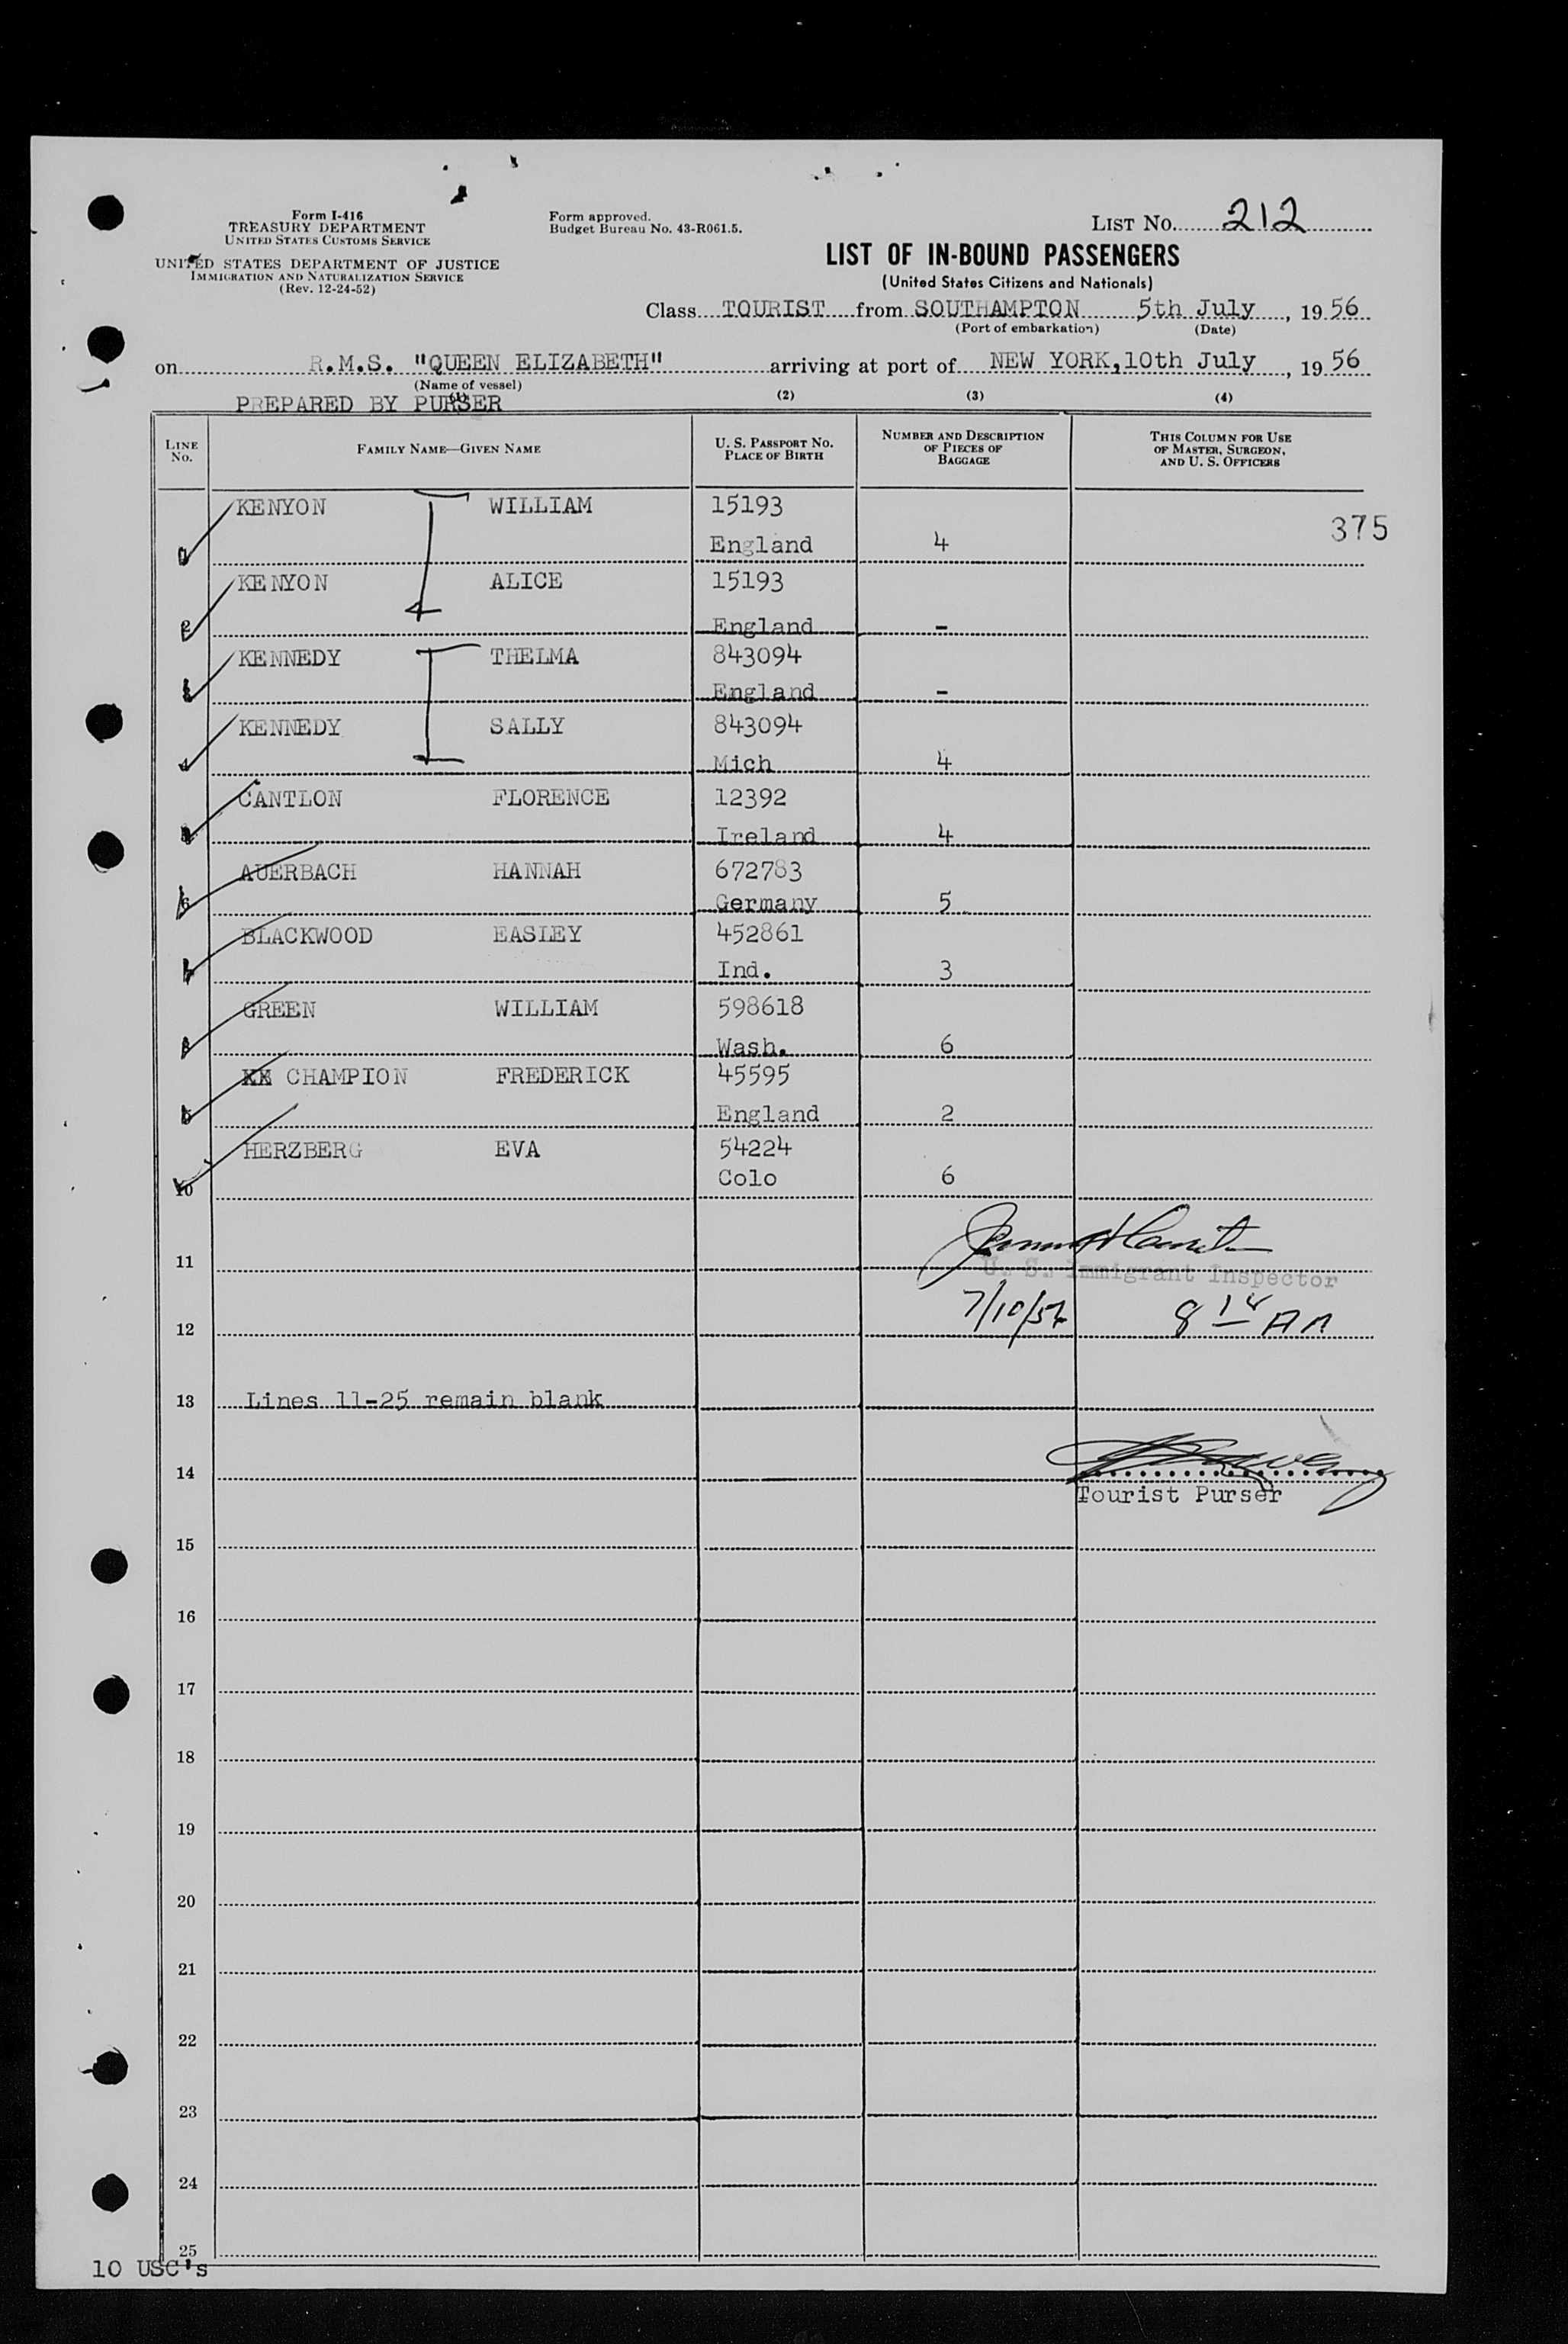 Form I-416
TREASURY DEPARTMENT
UNITED STATES CUSTOMS SERVICE
UNITED STATES DEPARTMENT OF JUSTICE
IMMIGRATION AND NATURALIZATION SERVICE
(Rev. 12-24-52)
Form approved.
Budget Bureau No. 43-R061.5.
LIST No. 212
LIST OF IN-BOUND PASSENGERS
(United States Citizens and Nationals)
Class TOURIST from SOUTHAMPTON 5th July, 19 56
(Port of embarkation) (Date)
on R.M.S. "QUEEN ELIZABETH" arriving at port of NEW YORK, 10th July, 19 56
(Name of vessel)
PREPARED BY PURSER
(1) (2) (3) (4)
LINE No. FAMILY NAME—GIVEN NAME U. S. PASSPORT NO. PLACE OF BIRTH NUMBER AND DESCRIPTION OF PIECES OF BAGGAGE THIS COLUMN FOR USE OF MASTER, SURGEON, AND U. S. OFFICERS
KENYON WILLIAM 15193
375
1 England 4
KENYON ALICE 15193
2 England -
KENNEDY THELMA 843094
3 England -
KENNEDY SALLY 843094
4 Mich 4
CANTLON FLORENCE 12392
5 Ireland 4
AUERBACH HANNAH 672783
6 Germany 5
BLACKWOOD EASLEY 452861
7 Ind. 3
GREEN WILLIAM 598618
8 Wash. 6
XX CHAMPION FREDERICK 45595
9 England 2
HERZBERG EVA 54224
10 Colo 6
11
U. S. Immigrant Inspector
12 7/10/56 8 AM
13 Lines 11-25 remain blank
14
Tourist Purser
15
16
17
18
19
20
21
22
23
24
25
10 USC's